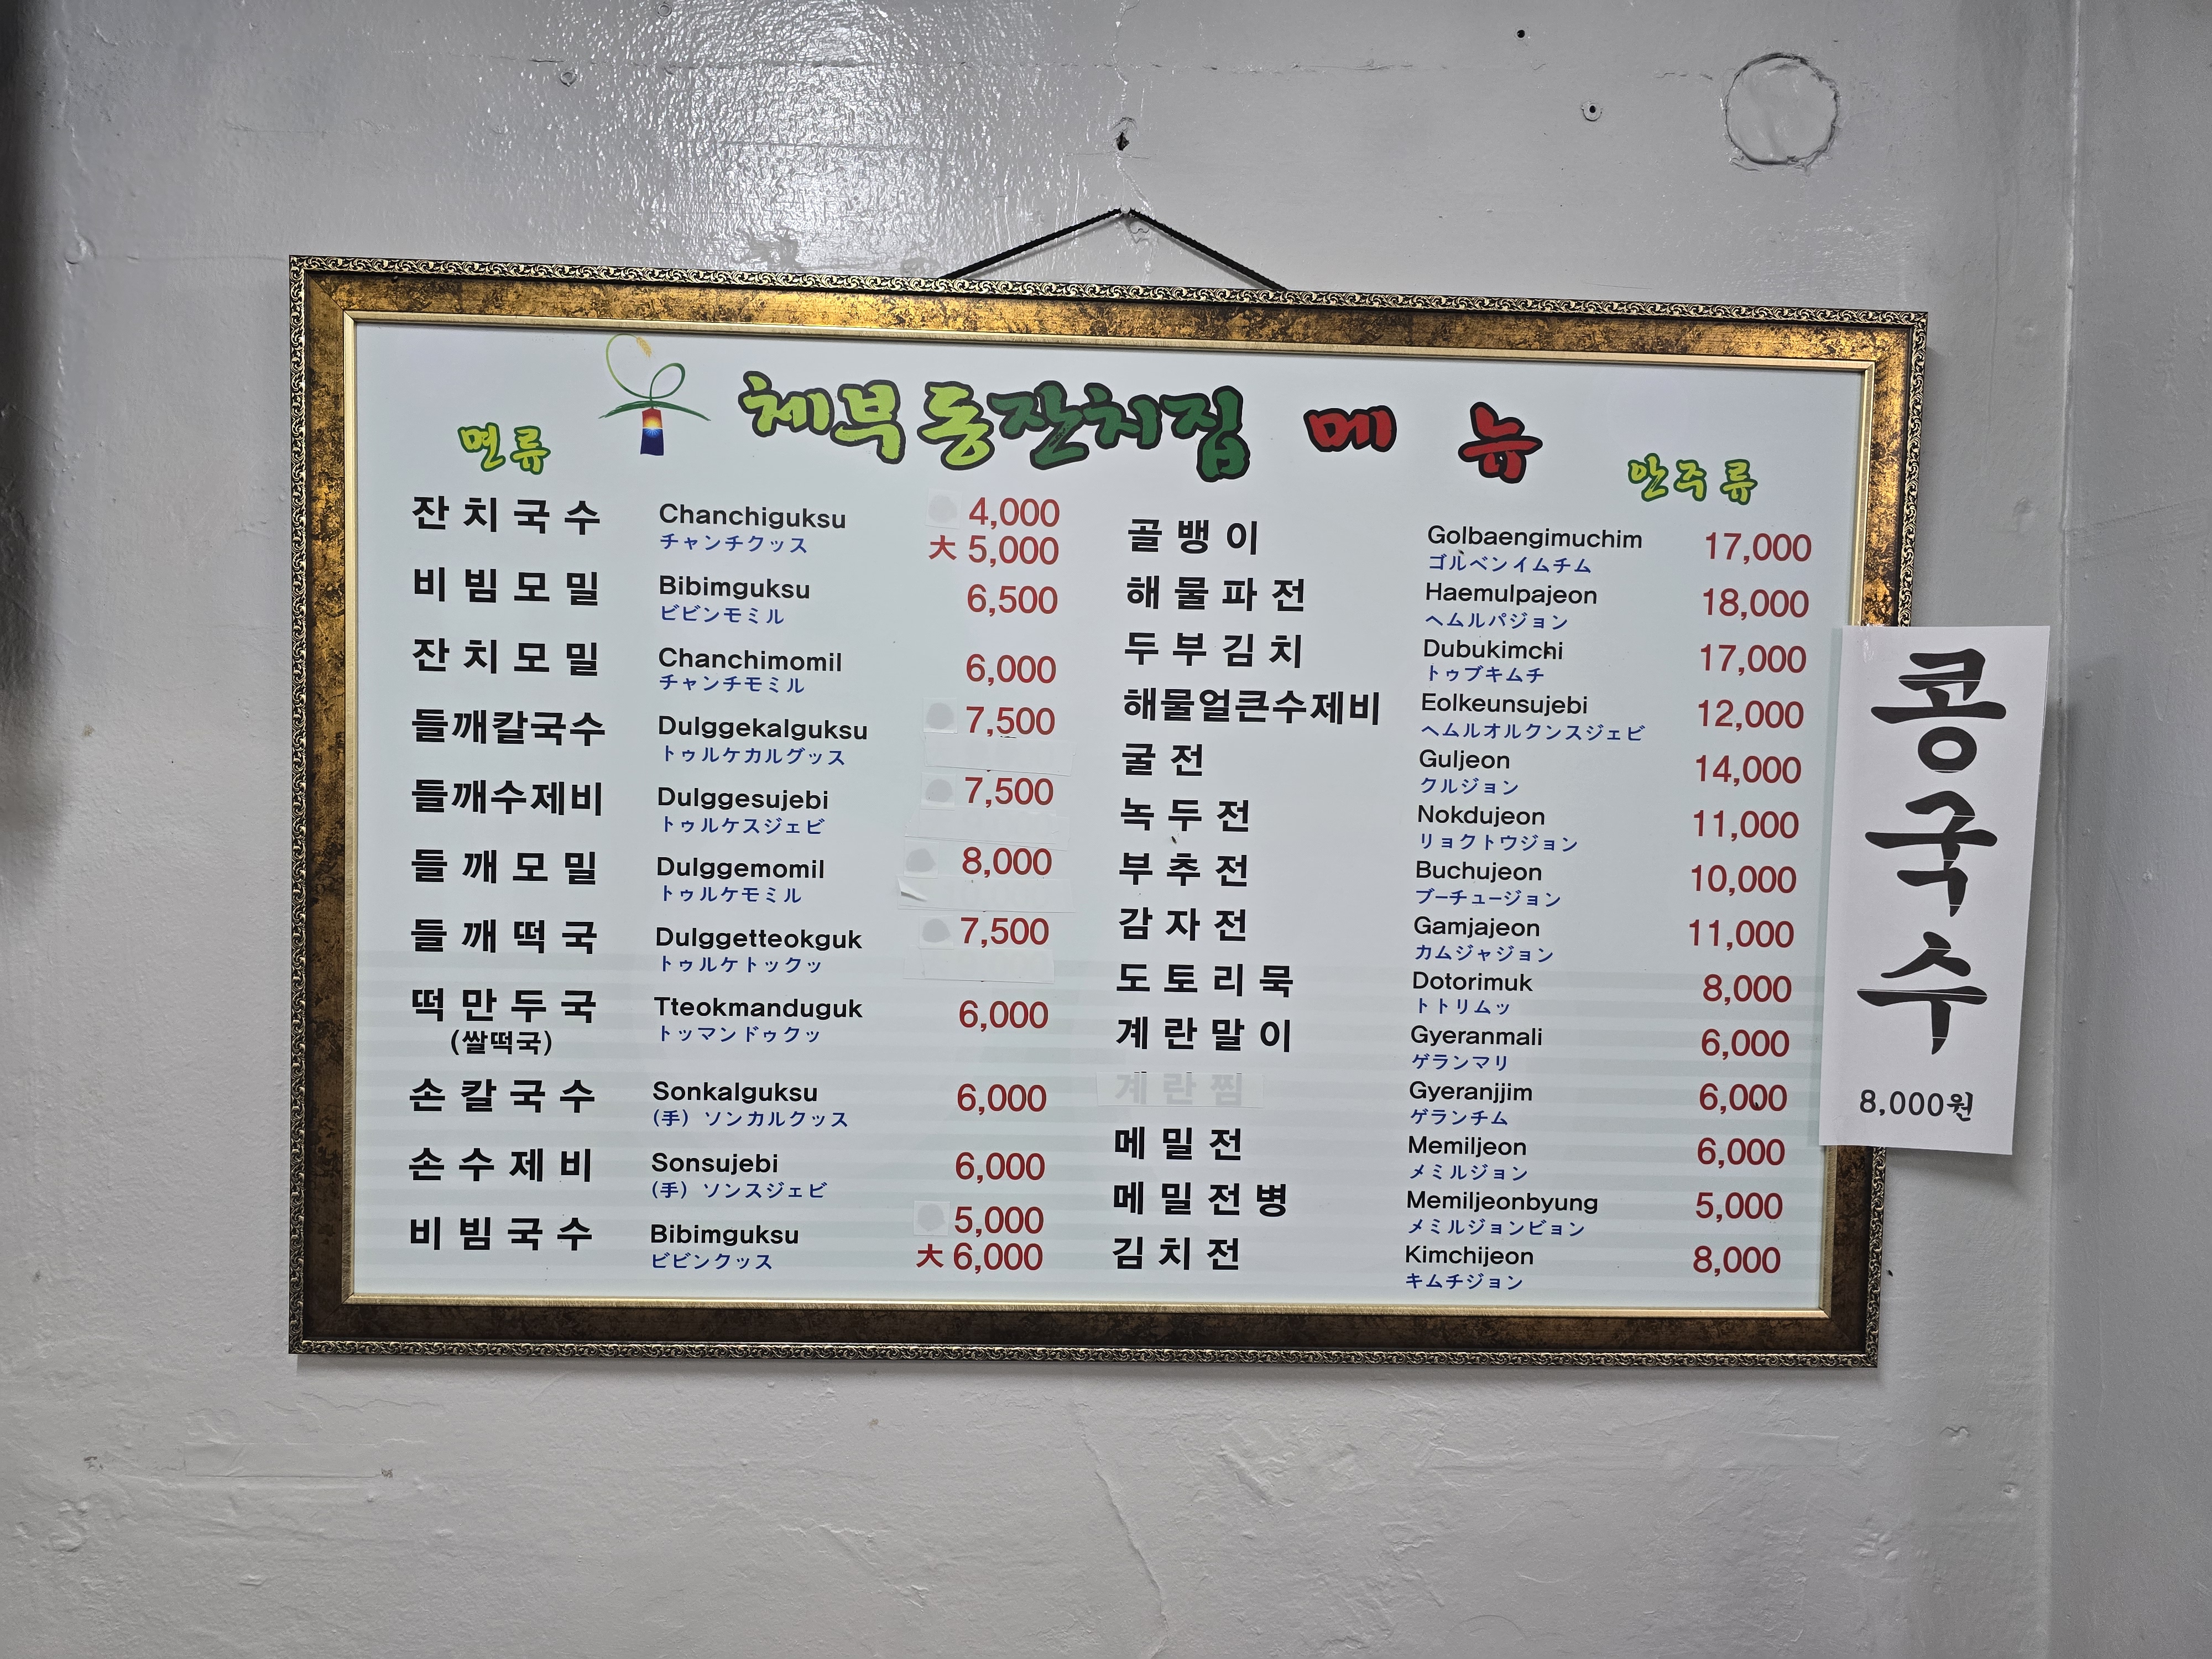 체부동잔치집 메뉴
면류
잔치국수 Chanchiguksu 4,000
チャンチクッス 大 5,000
비빔모밀 Bibimguksu 6,500
ビビンモミル
잔치모밀 Chanchimomil 6,000
チャンチモミル
들깨칼국수 Dulggekalguksu 7,500
トゥルケカルグッス
들깨수제비 Dulggesujebi 7,500
トゥルケスジェビ
들깨모밀 Dulggemomil 8,000
トゥルケモミル
들깨떡국 Dulggetteokguk 7,500
トゥルケトックッ
떡만두국 Tteokmanduguk 6,000
(쌀떡국) トッマンドゥクッ
손칼국수 Sonkalguksu 6,000
(手) ソンカルクッス
손수제비 Sonsujebi 6,000
(手) ソンスジェビ
비빔국수 Bibimguksu 5,000
ビビンクッス 大 6,000
안주류
골뱅이 Golbaengimuchim 17,000
ゴルベンイムチム
해물파전 Haemulpajeon 18,000
ヘムルパジョン
두부김치 Dubukimchi 17,000
トゥブキムチ
해물얼큰수제비 Eolkeunsujebi 12,000
ヘムルオルクンスジェビ
굴전 Guljeon 14,000
クルジョン
녹두전 Nokdujeon 11,000
リョクトウジョン
부추전 Buchujeon 10,000
ブーチュージョン
감자전 Gamjajeon 11,000
カムジャジョン
도토리묵 Dotorimuk 8,000
トトリムッ
계란말이 Gyeranmali 6,000
ゲランマリ
계란찜 Gyeranjjim 6,000
ゲランチム
메밀전 Memiljeon 6,000
メミルジョン
메밀전병 Memiljeonbyung 5,000
メミルジョンビョン
김치전 Kimchijeon 8,000
キムチジョン
콩국수
8,000원